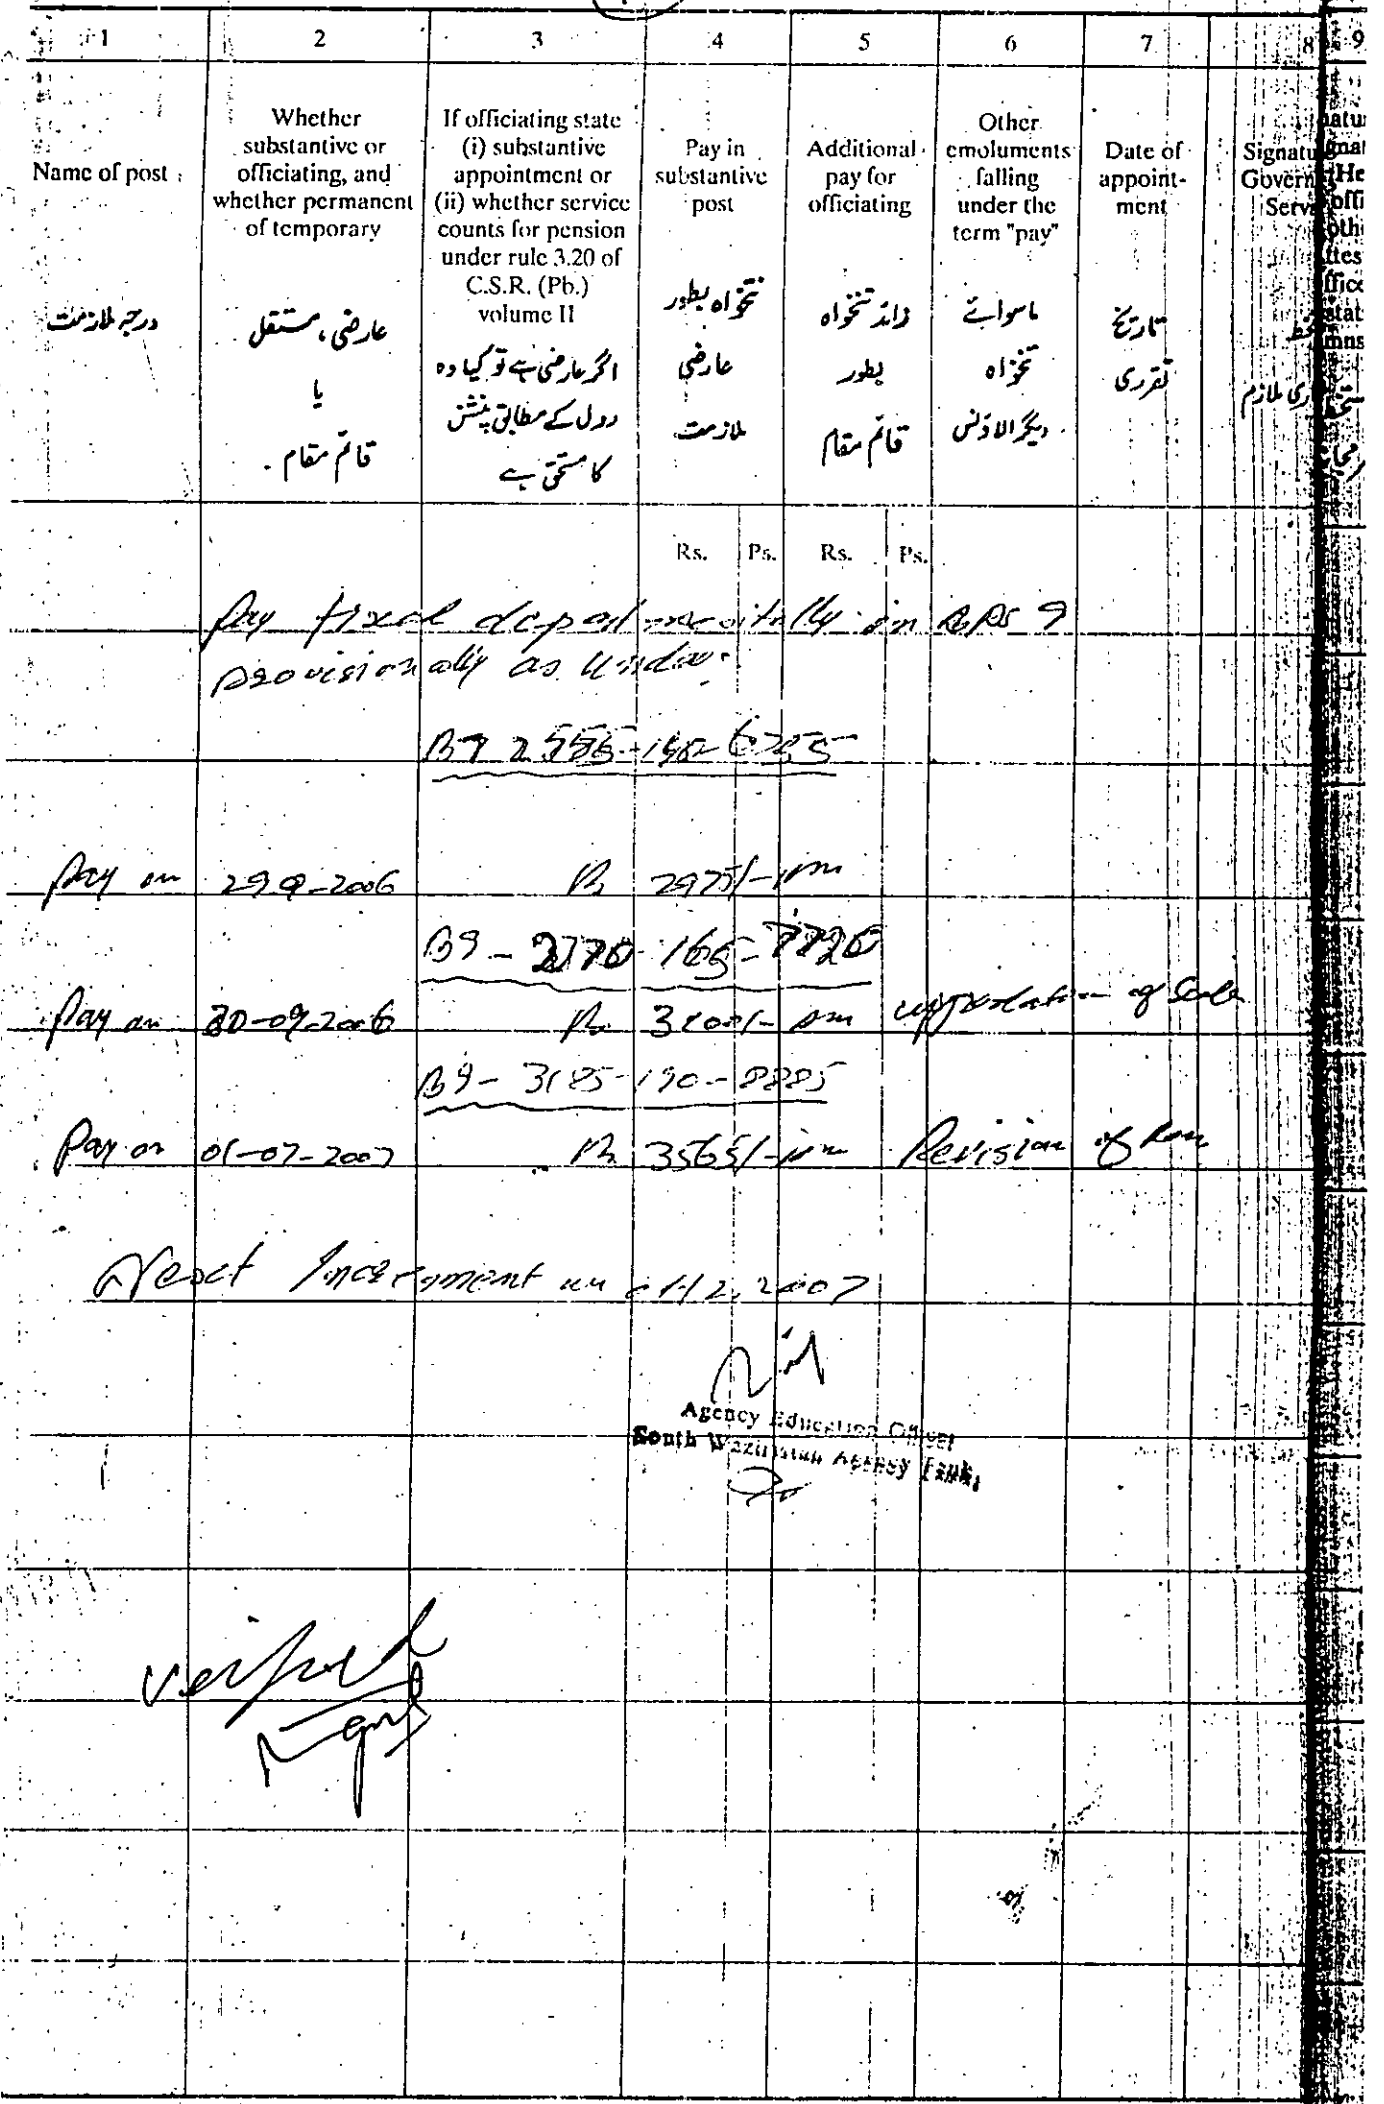 1 2 3 4 5 6 7 8 9
Name of post
درجہ ملازمت
Whether
substantive or
officiating, and
whether permanent
of temporary
عارضی، مستقل
یا
قائم مقام
If officiating state
(i) substantive
appointment or
(ii) whether service
counts for pension
under rule 3.20 of
C.S.R. (Pb.)
volume II
اگر عارضی ہے تو کیا وہ
رول کے مطابق پنشن
کا مستحق ہے
Pay in
substantive
post
تنخواہ بطور
عارضی
ملازمت
Additional
pay for
officiating
زائد تنخواہ
بطور
قائم مقام
Other
emoluments
falling
under the
term "pay"
ماسوائے
تنخواہ
دیگر الاؤنس
Date of
appoint-
ment
تاریخ
تقرری
Signatu
Govern
Serv
ری ملازم
Rs. Ps. Rs. Ps.
Pay fixed departmentally in BPS 9
provisionally as under.
Pay on 29-9-2006 Rs 2975/- pm
B9 - 2770-165-7720
Pay on 30-09-2006 Rs 3100/- pm upgradation of Scale
B9 - 3185-190-8885
Pay on 01-07-2007 Rs 3565/- pm Revision of
Next Increment on 1-12-2007
Agency Education Officer
South Waziristan Agency Tank
verified